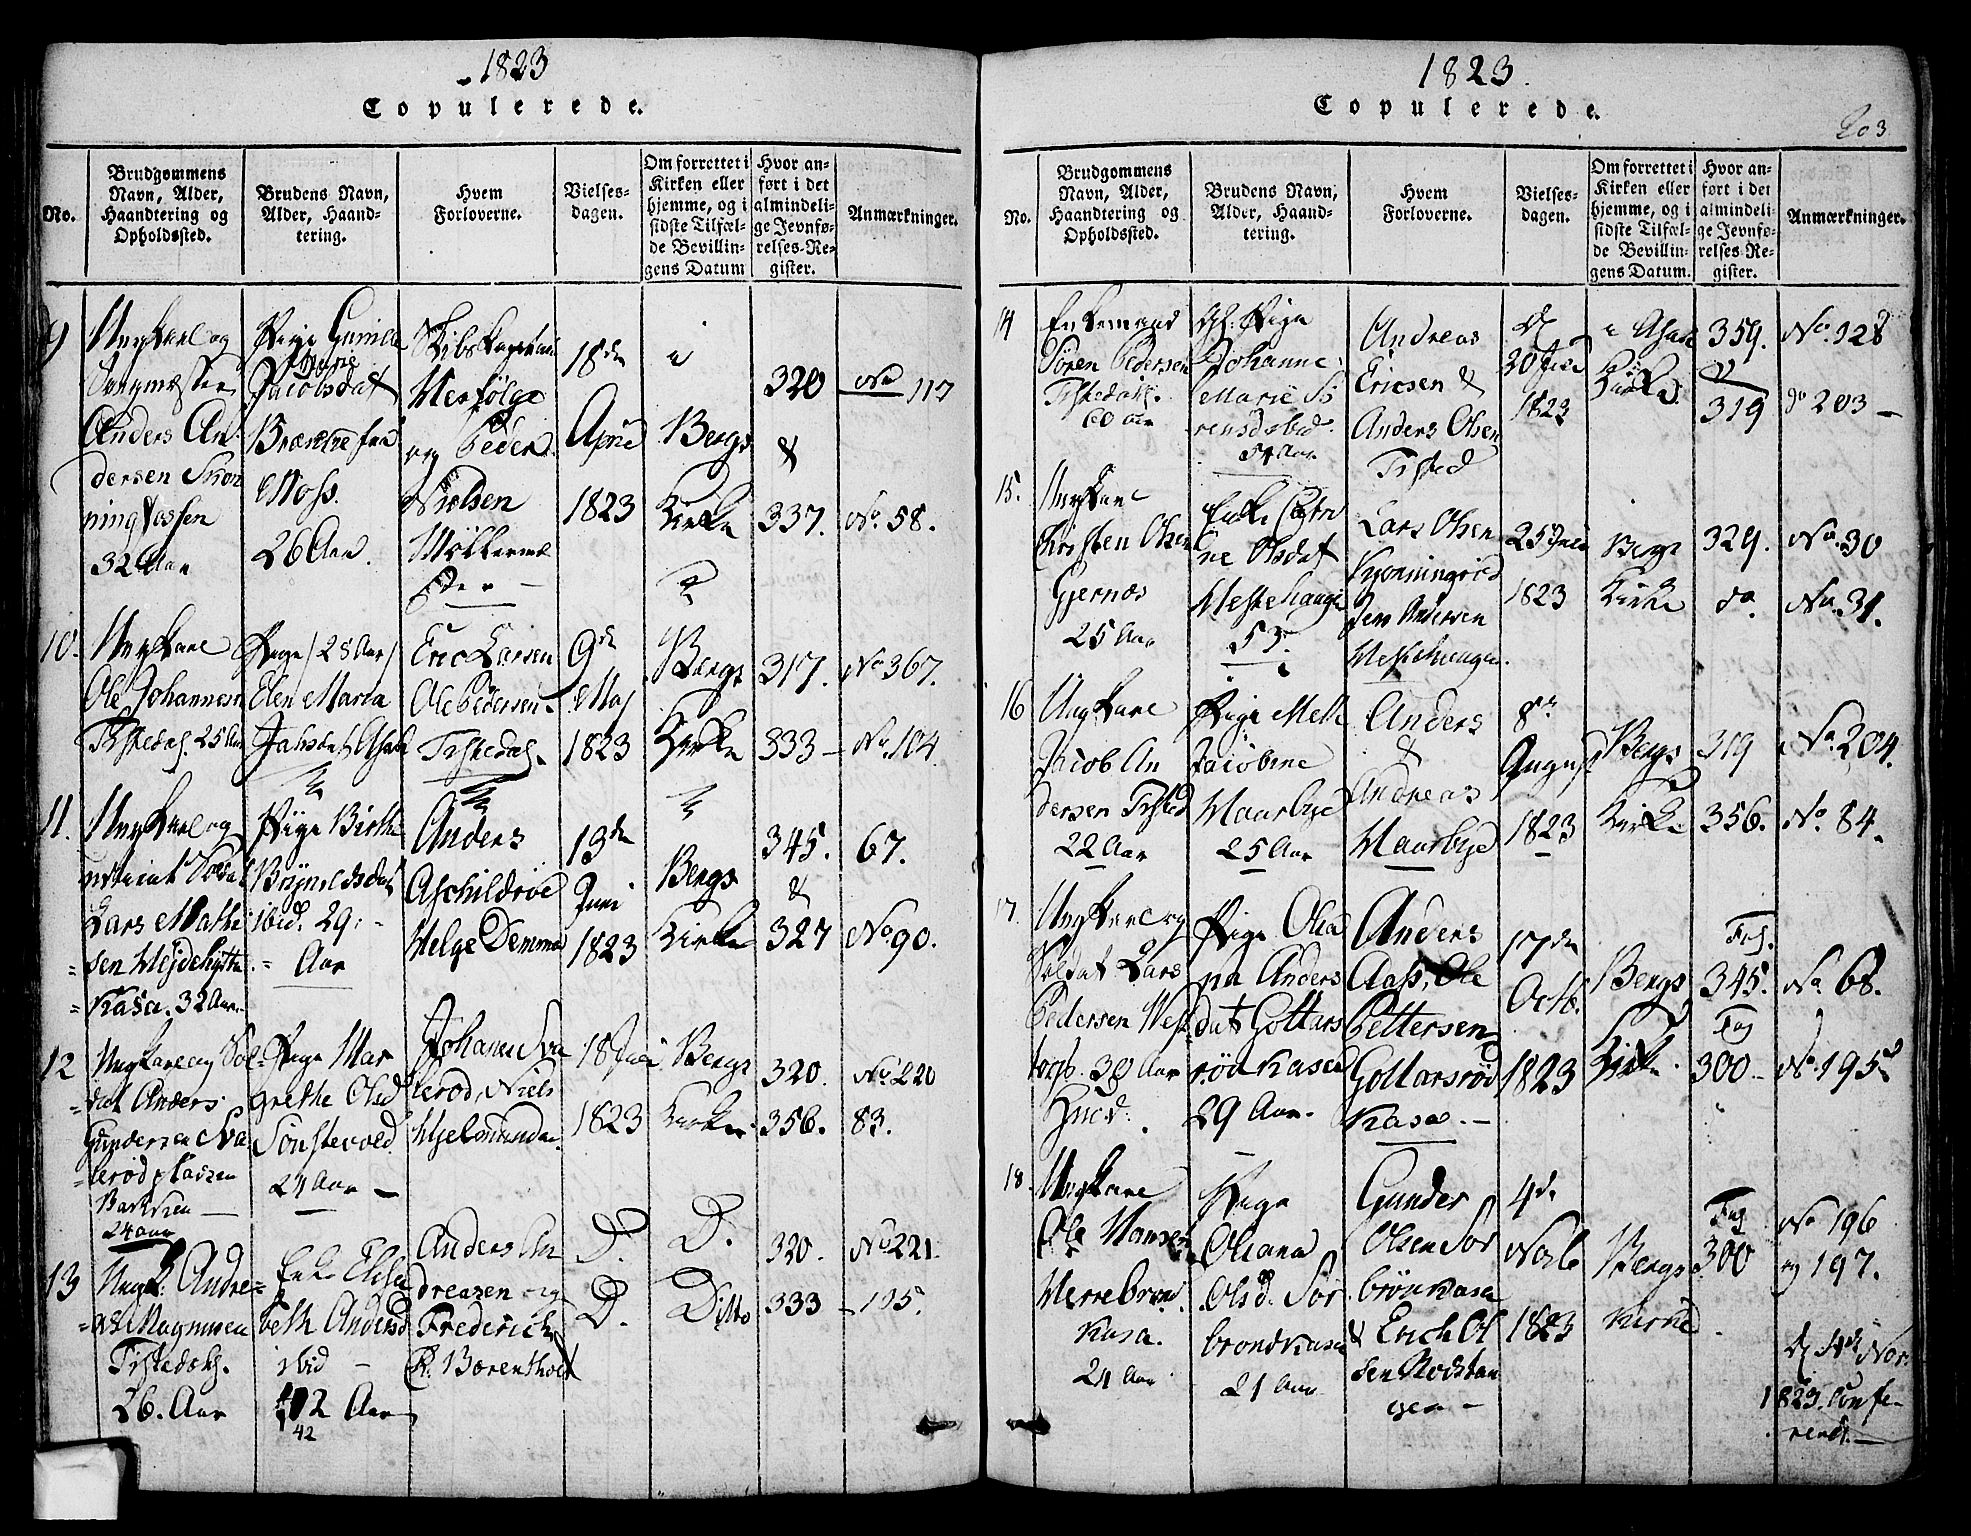 1823
Copulerede.
No.
Brudgommens
Navn, Alder,
Haandtering og
Opholdssted.
Brudens Navn,
Alder, Haand-
tering.
Hvem
Forloverne.
Vielses-
dagen.
Om forrettet i
Kirken eller
hjemme, og i
sidste Tilfæl-
de Bevillin-
gens Datum
Hvor an-
ført i det
almindeli-
ge Jevnfø-
relses-Re-
gister.
Anmærkninger.
9
Ungkarl og
Anders An-
dersen Skon-
ningfossen
32 Aar
Pige Gunild
Marie
Jacobsdat
Brænne fra
Moss.
26 Aar.
Skibskapitain
Herfølge
og Peder
Nielsen
Møllerme
ster
18de
April
1823
i
Bergs
Kirke
320
&
337.
No 117
No. 58.
10.
Ungkarl
Ole Johannesen
Tistedal. 25 Aar
Pige / 28 Aar /
Elen Maria
Jahsdat Asak
Eric Larsen
Ole Pedersen
Tistedal.
9de
Maj
1823
Bergs
Kirke
317.
333
No 367.
No. 104.
11.
Ungkarl og
Lars Mathi
sen Hejdehytte
Kasa. 32 Aar.
Pige Birthe
Brynildsdat
ibid. 29
Aar
Anders
Aschildrøe
Helge Demma
13de
Juni
1823
Bergs
Kirke
345.
&
327
67.
No 90.
12
Ungkarl og Sol-
dat Anders
Gundersen Sva
lerød pladsen
Bakken
24 aar
Pige Mar
grethe Olsd
Sønstevold
24 Aar
Johannes Sva
lerød, Niels
Hjelmunda
18 Juli
1823
Bergs
Kirke
320.
356.
No 220
83.
13
Ungk. Andre-
as Magnusen
Tistedal.
26. Aar
Enke Elisa
beth Andersd
ibid
42 Aar
42
Anders An
dreasen og
Frederich
R. Bærentholdt
D.
D.
D.
Ditto
320.
333
No 221.
105.
1823.
Copulerede.
203
No.
Brudgommens
Navn, Alder,
Haandtering og
Opholdssted.
Brudens Navn,
Alder, Haand-
tering.
Hvem
Forloverne.
Vielses-
dagen.
Om forrettet i
Kirken eller
hjemme, og i
sidste Tilfæl-
de Bevillin-
gens Datum.
Hvor an-
ført i det
almindeli-
ge Jevnfø-
relses-Re-
gister.
Anmærkninger.
14
Enkemand
Søren Pedersen
Tistedahl.
60 aar
Gl. Pige
Johanne
Marie Sö
rensdibid.
54 Aar
Andreas
Ericsen &
Anders Olsen
Tisted
D
20 Juli
1823
i Asak
Kirke
359.
319
No. 128
do 203
15.
Ungkarl
Christen Olsen
Gjernæs
25 Aar
Enke Catri
ne Olsdat
Hestehauge
53.
Lars Olsen
Kjønningrød
Jens Andersen
Hestehaugen
25 Juli
1823
Bergs
Kirke
329.
do.
No. 30
No. 31.
16
Ungkarl
Jacob An
dersen Tisted
22 Aar
Pige Mette
Jacobine
Haarbye
25 Aar
Anders
&
Andreas
Haarbye
8de
August
1823
Bergs
Kirke
319
356.
No. 204.
No. 84.
17.
Ungkarl og
Soldat Lars
Pedersen Vest
torp. 30 Aar
Pige Olea
na Anders
dat Gottars
rød Kasen
29 Aar.
Anders
Aass, Ole
Pettersen
Gottarsrød
Kase.
17de
Octb.
1823
Bergs
Kirke
Fag.
345.
Fag
300
No. 68.
No. 195
18.
Ungkarl
Ole Hansen
Herrebrøn
Kasa.
24 Aar
Pige
Oleana
Olsd. Sør
brondkasa
21 Aar
Gunder
Olsen Sör
brönkasa
& Erich Ol
sen Rødstan
gen
4de
Novb
1823
Bergs
Kirke
Fag
300
No 196
og 197.
D. 14de Nov.
1823. Confe-
reret.